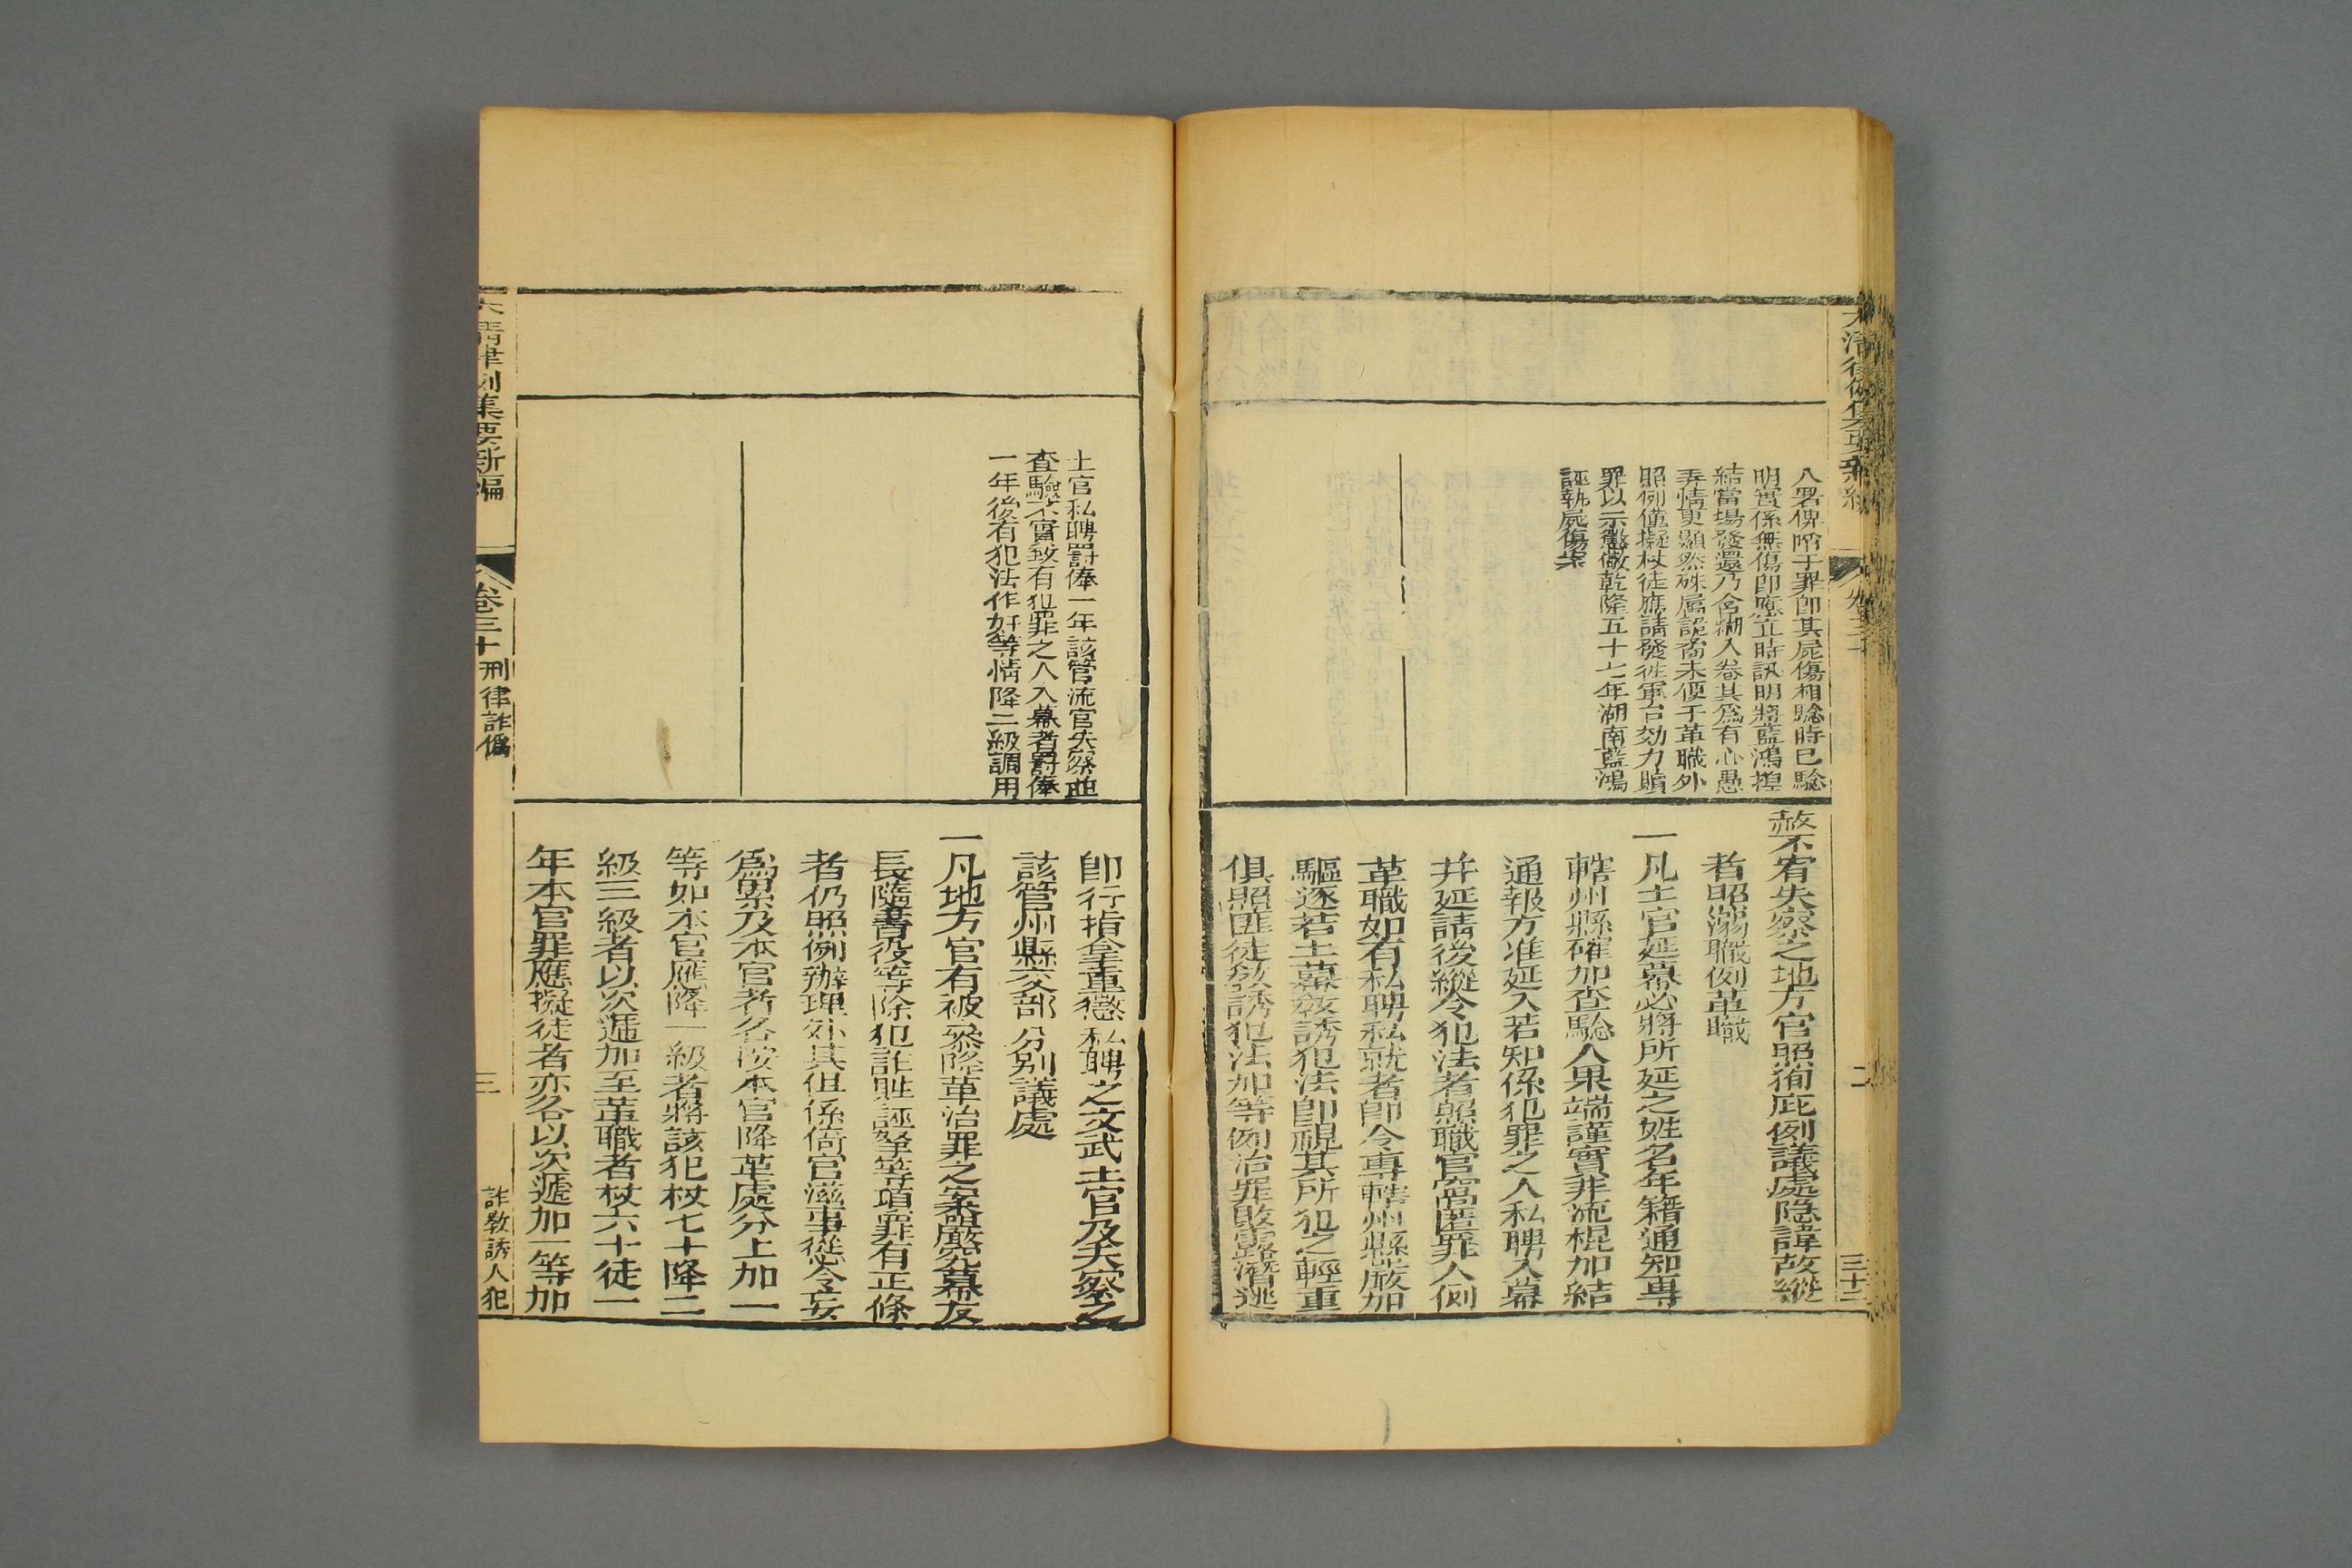 八署俾陷于罪卽其屍傷相驗時已驗
明實係無傷卽應立時訊明將藍鴻捏
結當場發還乃含糊入卷其爲有心愚
弄情更顯然殊屬詭譎未便于革職外
照例僅擬杖徒應請發往軍台効力贖
罪以示懲儆乾隆五十七年湖南藍鴻
誣執屍傷案
赦不宥失察之地方官照徇庇例議處隐諱故縱
者昭溺職例革職
一凡土官延幕必將所延之姓名年籍通知專
轄州縣確加查驗人果端謹實非流棍加結
通報方准延入若知係犯罪之人私聘入幕
并延請後縱令犯法者照職官窩匿罪人例
革職如有私聘私就者卽令專轄州縣嚴加
驅逐若土幕敎誘犯法卽視其所犯之輕重
俱照匪徒敎誘犯法加等例治罪敗露潛逃
二
三十二
土官私聘罰俸一年該管流官失察並
查驗不實致有犯罪之人入幕者罰俸
一年後有犯法作奸等情降二級調用
卽行指拿重懲私聘之文武土官及失察之
該管州縣交部分別議處
一凡地方官有被叅降革治罪之案嚴究幕友
長隨書役等除犯詐贓誣拏等項罪有正條
者仍照例辦理外其但係倚官滋事慫令妄
爲累及本官者各按本官降革處分上加一
等如本官應降一級者將該犯杖七十降二
級三級者以次遞加至革職者杖六十徒一
年本官罪應擬徒者亦各以次遞加一等加
大清律例集要新編
卷三十
刑律詐僞
三
詐敎誘人犯